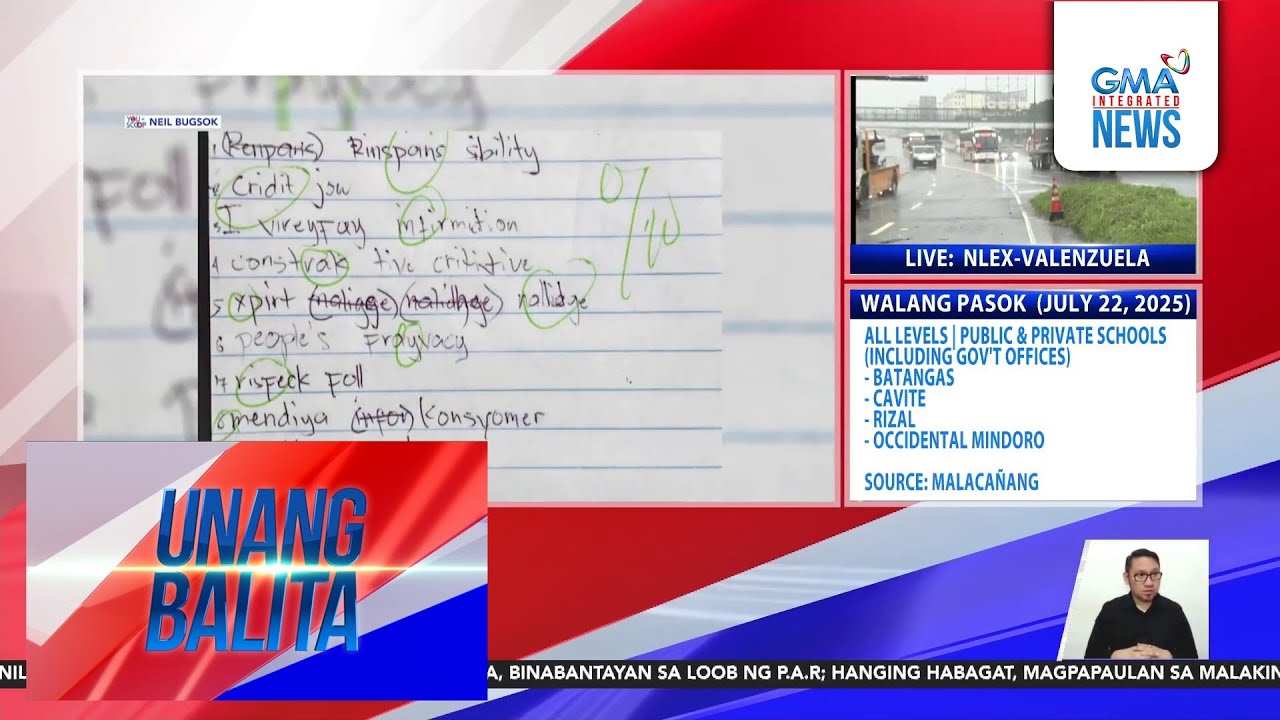 GMA
INTEGRATED
NEWS
YOU SCOOP NEIL BUGSOK
1 (Renparis) Rinspains sibility
2 Cridit jsu
3 I vireyfay infirmition
4 construk tive crititive
5 xpirt (naligge) (nalidhge) nallidge
6 people's Frayvacy
7 risfeck Foll
8 mendiya (infor) Konsyomer
0/10
LIVE: NLEX-VALENZUELA
WALANG PASOK (JULY 22, 2025)
ALL LEVELS | PUBLIC & PRIVATE SCHOOLS
(INCLUDING GOV'T OFFICES)
- BATANGAS
- CAVITE
- RIZAL
- OCCIDENTAL MINDORO
SOURCE: MALACAÑANG
UNANG
BALITA
NIL
A, BINABANTAYAN SA LOOB NG P.A.R; HANGING HABAGAT, MAGPAPAULAN SA MALAKIN